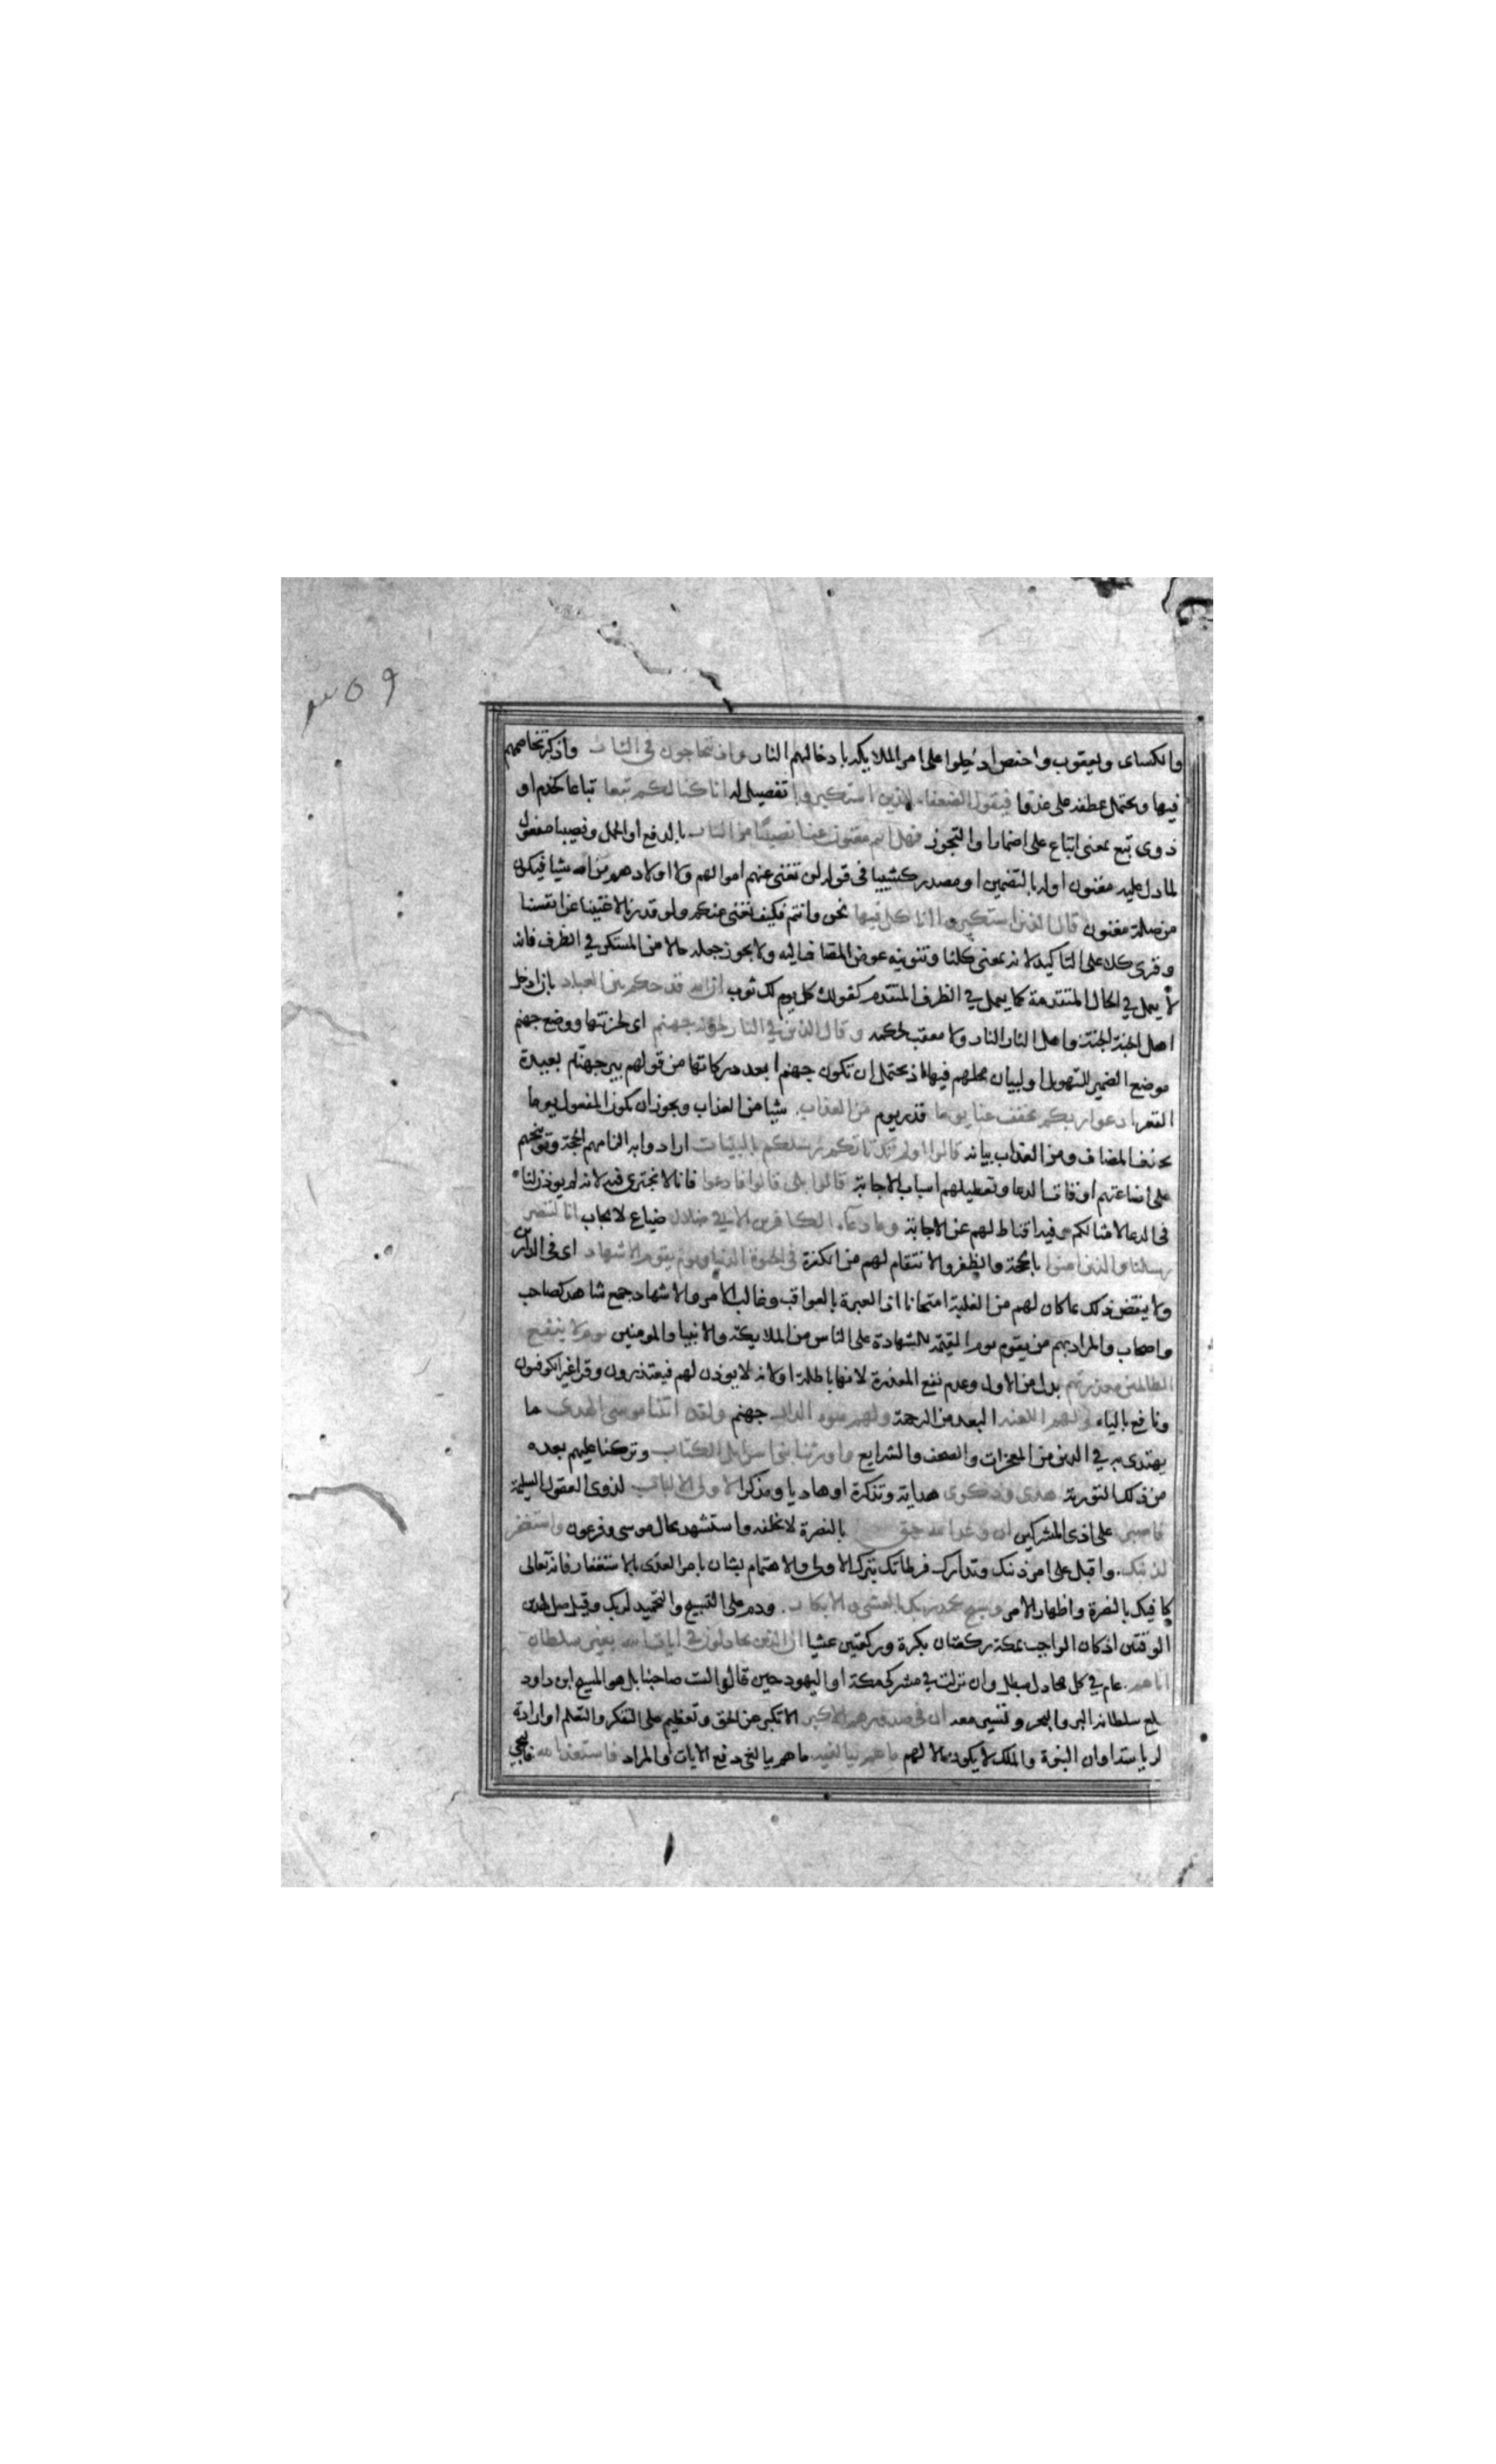 ٣٥٩
والكسائى ويعقوب وحفص ادخلوا على امر الملايكه بادخالهم النار واذ يتحاجون فى النار واذكر تخاصمهم
فيها ويحتمل عطفه على غدوا فيقول الضعفاء للذين استكبروا تفصيل له انا كنا لكم تبعا تباعا كخدم او
ذوى تبع بمعنى اتباع على اضمار او التجوز فهل انتم مغنون عنا نصيبا من النار بالدفع او الحمل ونصيبا مفعول
لما دل عليه مغنون او له بالتضمين او مصدر كشييا فى قوله لن تغنى عنهم اموالهم ولا اولادهم من الله شيا فيكون
من صلة مغنون قال الذين استكبروا انا كل فيها نحن وانتم فكيف نغنى عنكم ولو قدرنا لاغنينا عن انفسنا
وقرى كلا على التاكيد لانه بمعنى كلنا وتنوينه عوض المضاف اليه ولا يجوز جعله حالا من المستكن في الظرف فانه
لا يعمل في الحال المتقدمة كما يعمل في الظرف المتقدم كقولك كل يوم لك ثوب ان الله قد حكم بين العباد بان ادخل
اهل الجنة الجنة واهل النار النار ولا معقب لحكمه وقال الذين في النار لخزنة جهنم اى لخزنتها ووضع جهنم
موضع الضمير للتهويل او لبيان محلهم فيها اذ يحتمل ان تكون جهنم ابعد دركاتها من قولهم بير جهنام بعيدة
القعر ادعوا ربكم يخفف عنا يوما قدر يوم من العذاب شيا من العذاب ويجوز ان يكون المفعول يوما
بحذف المضاف ومن العذاب بيانه قالوا اولم تك تاتيكم رسلكم بالبينات ارادوا به الزامهم الحجة وتوبيخهم
على اضاعتهم اوقات الدعا وتعطيلهم اسباب الاجابة قالوا بلى قالوا فادعوا فانا لا نجترى فيه لانه لم يوذن لنا
فى الدعا لامثالكم وفيه اقناط لهم عن الاجابة وما دعاء الكافرين الا في ضلال ضياع لا يجاب انا لننصر
رسلنا والذين امنوا بالحجة والظفر والانتقام لهم من الكفرة فى الحيوة الدنيا ويوم يقوم الاشهاد اى فى الدارين
ولا ينتقض ذلك بما كان لهم من الغلبة امتحانا اذ العبرة بالعواقب وغالب الامر والاشهاد جمع شاهد كصاحب
واصحاب والمراد بهم من يقوم يوم القيمة للشهادة على الناس من الملايكة والانبيا والمومنين يوم لا ينفع
الظالمين معذرتهم بدل من الاول وعدم نفع المعذرة لانها باطلة او لانه لا يوذن لهم فيعتذرون وقرا غير الكوفيون
ونافع بالياء ولهم اللعنه البعد من الرحمة ولهم سوء الدار جهنم ولقد اتينا موسى الهدى ما
يهتدى به في الدين من المعجزات والصحف والشرايع واورثنا بنى اسرايل الكتاب وتركنا عليهم بعده
من ذلك التورية هدى وذكرى هداية وتذكرة او هاديا ومذكرا لاولى الالباب لذوى العقول السليمة
فاصبر على اذى المشركين ان وعد الله حق بالنصرة لا يخلفه واستشهد بحال موسى وفرعون واستغفر
لذنبك واقبل على امر ذنبك وتدارك فرطاتك بترك الاولى والاهتمام بشان بامر العدى بالاستغفار فانه تعالى
كافيك بالنصرة واظهار الامر وسبح بحمد ربك بالعشى والابكار ودم على التسبيح والتحميد لربك وقيل صل لهذين
الوقتين اذ كان الواجب بمكة ركعتان بكرة وركعتين عشيا ان الذين يجادلون في ايات الله بغير سلطان
اتاهم عام في كل مجادل مبطل وان نزلت في مشركى مكة او اليهود حين قالوا لست صاحبنا بل هو المسيح ابن داود
يبلغ سلطانه البر والبحر وتسير معه ان فى صدورهم الا كبر الا تكبر عن الحق وتعظيم على التفكر والتعلم او ارادة
الرياسة او ان النبوة والملك لا يكون الا لهم ما هم ببالغيه ما هم ببالغى دفع الايات او المراد فاستعذ بالله فالتجى